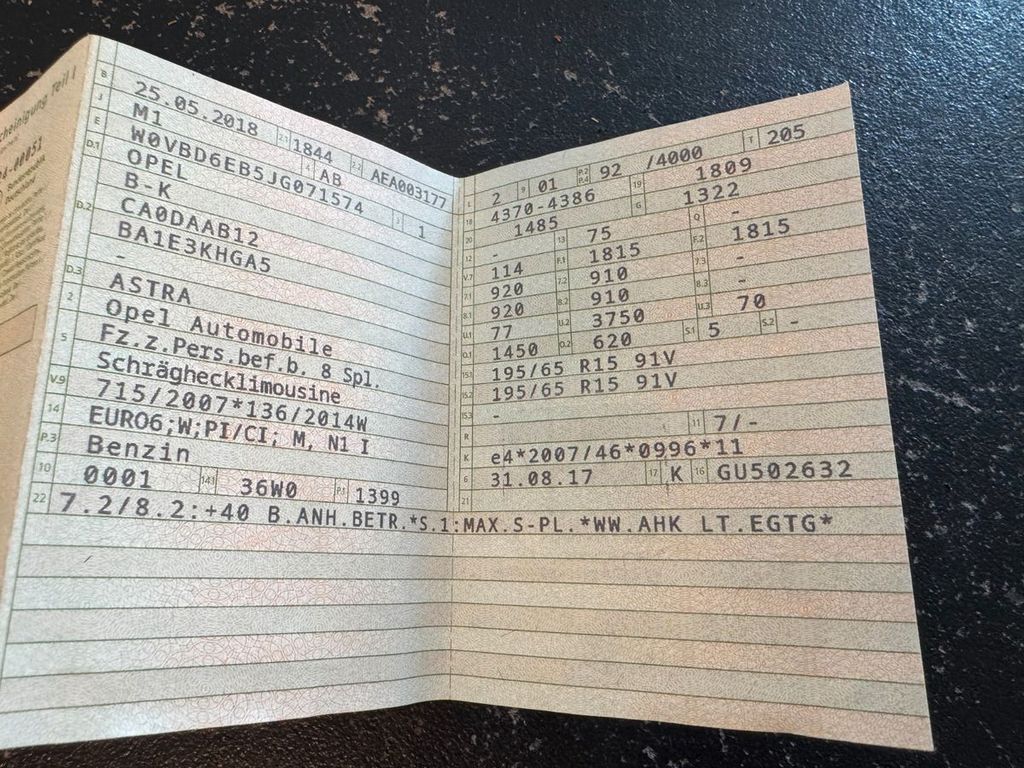 cheinigung Teil I
B 25.05.2018 2.1 1844 2.2 AEA003177
J M1 4 AB
E W0VBD6EB5JG071574 3 1
D.1 OPEL
B-K
D.2 CA0DAAB12
BA1E3KHGA5
-
D.3 ASTRA
2 Opel Automobile
5 Fz.z.Pers.bef.b. 8 Spl.
Schräghecklimousine
V.9 715/2007*136/2014W
14 EURO6;W;PI/CI; M, N1 I
P.3 Benzin
10 0001 14.1 36W0 P.1 1399
L 2 9 01 P.2 P.4 92 /4000 T 205
18 4370-4386 19 1809
20 1485 G 1322
12 - 13 75 Q -
V.7 114 F.1 1815 F.2 1815
7.1 920 7.2 910 7.3 -
8.1 920 8.2 910 8.3 -
U.1 77 U.2 3750 U.3 70
O.1 1450 O.2 620 S.1 5 S.2 -
15.1 195/65 R15 91V
15.2 195/65 R15 91V
15.3 -
R 11 7/-
K e4*2007/46*0996*11
6 31.08.17 17 K 16 GU502632
21
22 7.2/8.2:+40 B.ANH.BETR.*S.1:MAX.S-PL.*WW.AHK LT.EGTG*